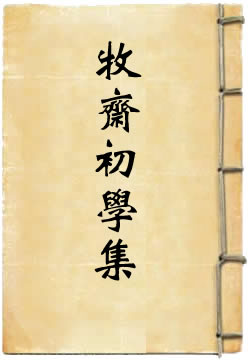 牧齋初學集